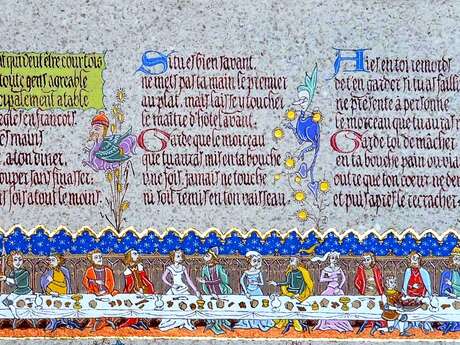 qui veut être courtois
toute gens agreable
cipalement a table
regles en francois
es mains
a ton diner,
ouper sans finasser
ois a tout le moins.
Si tu es bien savant,
ne mets pas ta main le premier
au plat, mais laisse y toucher
le maître d'hôtel avant.
Garde que le morceau
que tu auras mis en ta bouche
une fois, jamais ne touche
ni soit remis en ton vaisseau.
Aies en toi remords
de t'en garder si tu as failli
ne présente à personne
le morceau que tu auras
Garde toi de mâcher
en ta bouche pain ou
que ton cœur ne
et puis après le recracher